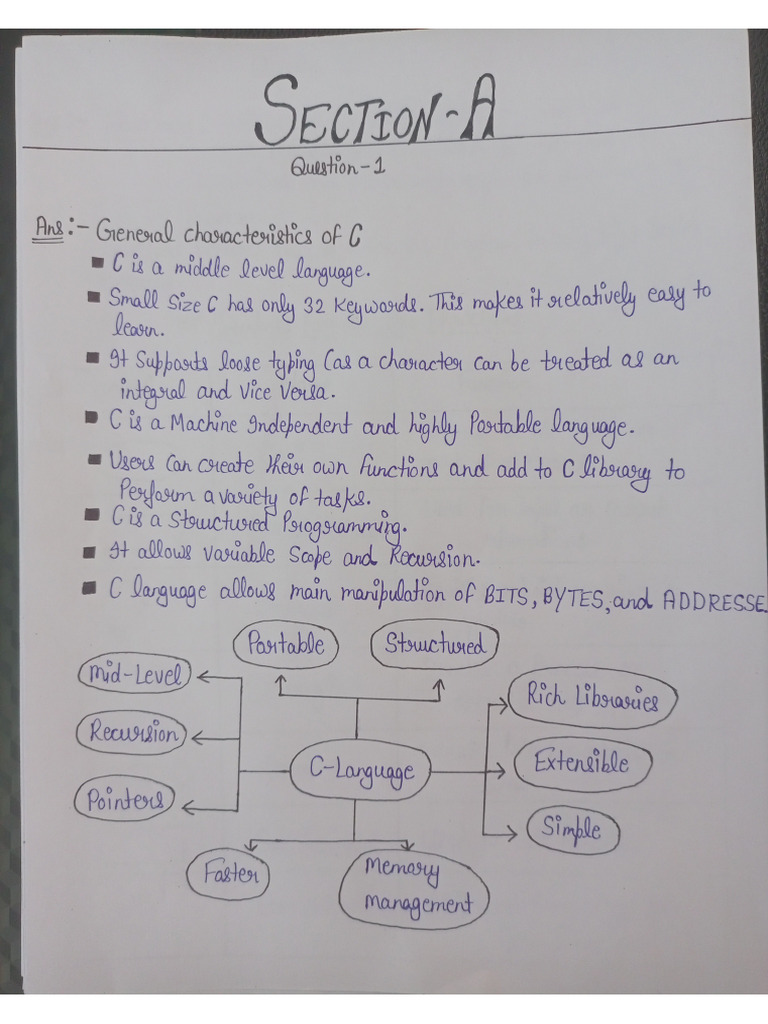 SECTION-A
Question-1
Ans:- General characteristics of C
C is a middle level language.
Small Size C has only 32 Keywords. This makes it relatively easy to
learn.
It Supports loose typing (as a character can be treated as an
integral and vice versa.
C is a Machine Independent and highly Portable language.
Users can create their own functions and add to C library to
Perform a variety of tasks.
C is a Structured Programming.
It allows variable Scope and Recursion.
C language allows main manipulation of BITS, BYTES, and ADDRESSE
Portable
Structured
Mid-Level
Rich Libraries
Recursion
C-Language
Extensible
Pointers
Simple
Faster
Memory
management